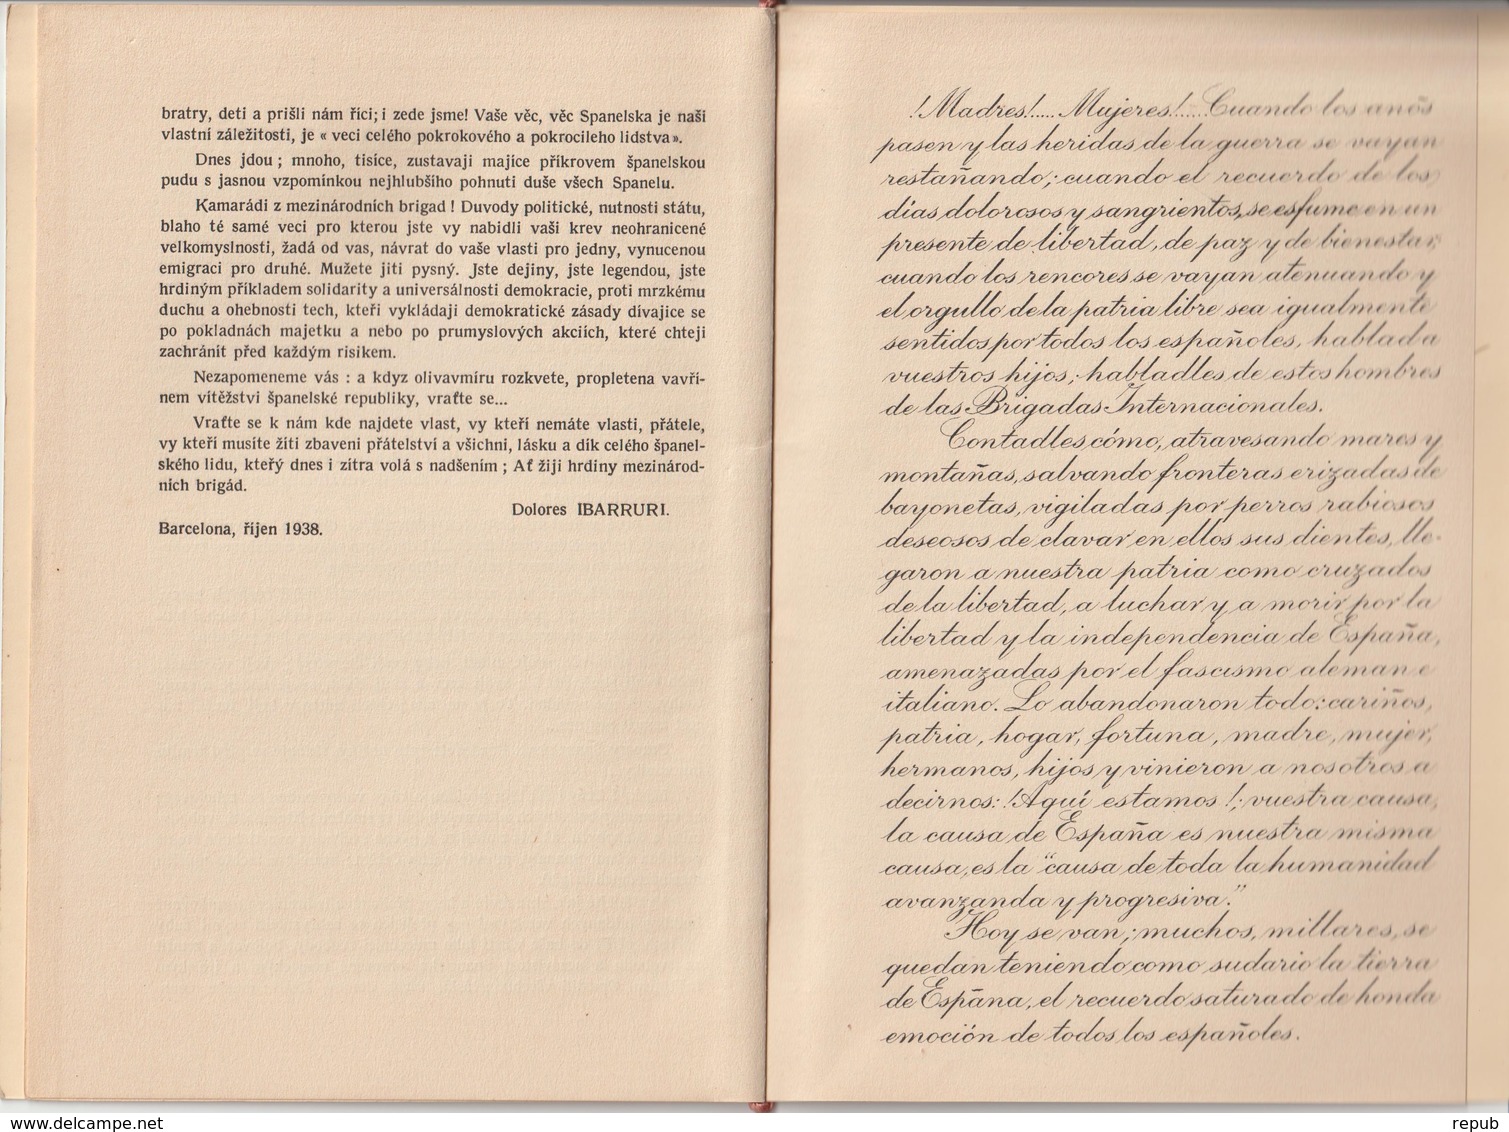 bratry, deti a prišli nám říci; i zede jsme! Vaše věc, věc Spanelska je naši
vlastní záležitosti, je « veci celého pokrokového a pokrocileho lidstva».
Dnes jdou ; mnoho, tisíce, zustavaji majíce příkrovem španelskou
pudu s jasnou vzpomínkou nejhlubšího pohnuti duše všech Spanelu.
Kamarádi z mezinárodních brigad ! Duvody politické, nutnosti státu,
blaho té samé veci pro kterou jste vy nabidli vaši krev neohranicené
velkomyslnosti, žadá od vas, návrat do vaše vlasti pro jedny, vynucenou
emigraci pro druhé. Mužete jiti pysný. Jste dejiny, jste legendou, jste
hrdiným příkladem solidarity a universálnosti demokracie, proti mrzkému
duchu a ohebnosti tech, kteři vykládaji demokratické zásady dívajice se
po pokladnách majetku a nebo po prumyslových akciích, které chteji
zachránit před každým risikem.
Nezapomeneme vás : a kdyz olivavmíru rozkvete, propletena vavří-
nem vítěžství španelské republiky, vraťte se...
Vraťte se k nám kde najdete vlast, vy kteří nemáte vlasti, přátele,
vy kteří musíte žíti zbaveni přátelství a všichni, lásku a dík celého španel-
ského lidu, kteřý dnes i zítra volá s nadšením ; Ať žiji hrdiny mezinárod-
ních brigád.
Dolores IBARRURI.
Barcelona, říjen 1938.
!Madres!..... Mujeres!.......Cuando los anõs
pasen y las heridas de la guerra se vayan
restañando; cuando el recuerdo de los
días dolorosos y sangrientos, se esfume en un
presente de libertad, de paz y de bienestar;
cuando los rencores se vayan atenuando y
el orgullo de la patria libre sea igualmente
sentidos por todos los españoles, hablad a
vuestros hijos; habladles de estos hombres
de las Brigadas Internacionales.
Contadles cómo, atravesando mares y
montañas, salvando fronteras erizadas de
bayonetas, vigiladas por perros rabiosos
deseosos de clavar en ellos sus dientes, lle-
garon a nuestra patria como cruzados
de la libertad, a luchar y a morir por la
libertad y la independencia de España,
amenazadas por el fascismo aleman e
italiano. Lo abandonaron todo: cariños,
patria, hogar, fortuna, madre, mujer,
hermanos, hijos y vinieron a nosotros a
decirnos: !Aquí estamos !; vuestra causa,
la causa de España es nuestra misma
causa, es la "causa de toda la humanidad
avanzanda y progresiva."
Hoy se van; muchos, millares, se
quedan teniendo como sudario la tierra
de Espãna, el recuerdo saturado de honda
emoción de todos los españoles.
www.delcampe.net
repub